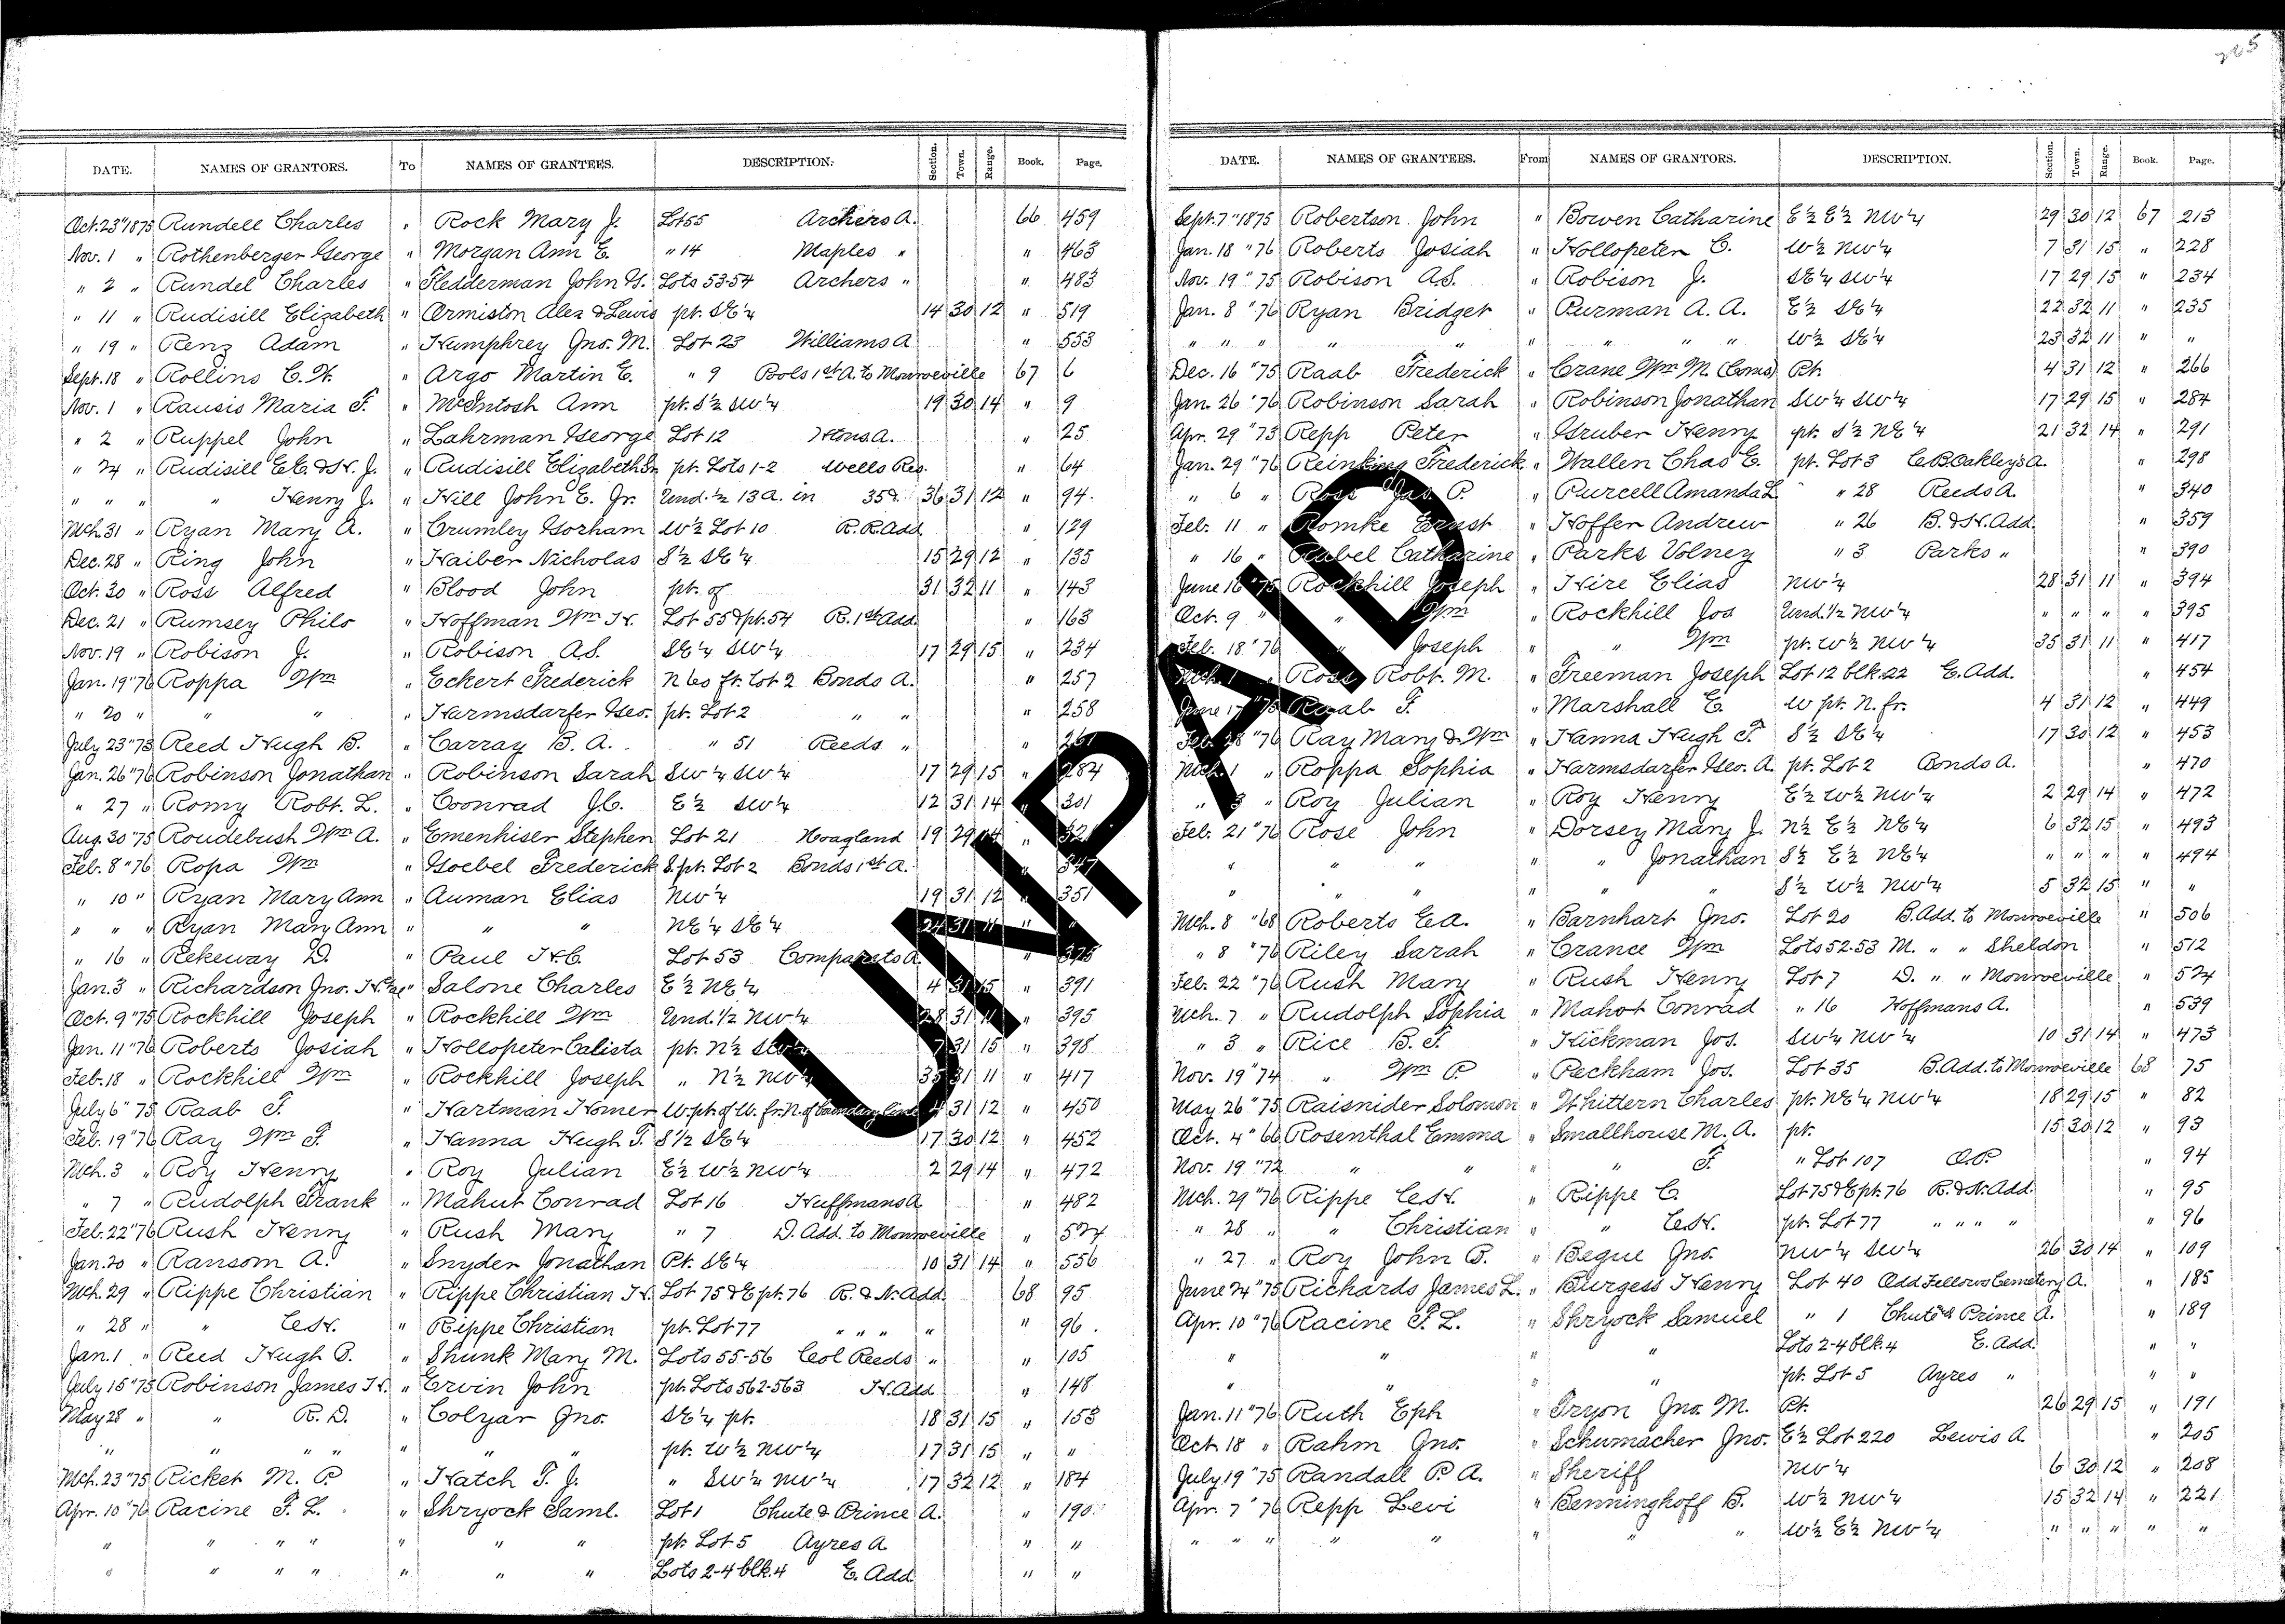 285
DATE. NAMES OF GRANTORS. To NAMES OF GRANTEES. DESCRIPTION. Section. Town. Range. Book. Page.
Oct. 23 " 1875 Rundell Charles " Rock Mary J. Lot 55 Archers A. 66 459
Nov. 1 " Rothenberger George " Morgan Ann E. " 14 Maples " " 463
" 2 " Rundel Charles " Fledderman John G. Lots 53-54 Archers " " 483
" 11 " Rudisill Elizabeth " Ormiston Alex & Lewis pt. SE¼ 14 30 12 " 519
" 19 " Renz Adam " Humphrey Jno. M. Lot 23 Williams A " 553
Sept. 18 " Rollins C. H. " Argo Martin E. " 9 Bols 1st A. to Monroeville 67 6
Nov. 1 " Rausis Maria F. " McIntosh Ann pt. S½ SW¼ 19 30 14 " 9
" 2 " Ruppel John " Lahrman George Lot 12 A. " 25
" 24 " Rudisill & H. J. " Rudisill Elizabeth pt. Lots 1-2 Wells Res. " 64
" " " " Henry J. " Hill John E. Jr. Und. ½ 13 A. in 35 & 36 31 12 " 94
Mch. 31 " Ryan Mary A. " Crumley Gorham W½ Lot 10 R. R. Add " 129
Dec. 28 " Ring John " Haiber Nicholas S½ SE¼ 15 29 12 " 135
Oct. 30 " Ross Alfred " Blood John pt. of 31 32 11 " 143
Dec. 21 " Rumsey Philo " Hoffman Wm H. Lot 55 & pt. 54 R. 1st Add " 163
Nov. 19 " Robison J. " Robison A.S. SE¼ SW¼ 17 29 15 " 234
Jan. 19 " 76 Roppa Wm " Eckert Frederick N 60 ft. Lot 2 Bonds A. " 257
" 20 " " " " Harmsdarfer Geo. pt. Lot 2 " " " 258
July 23 " 75 Reed Hugh B. " Carray B. A. " 51 Reeds " " 261
Jan. 26 " 76 Robinson Jonathan " Robinson Sarah SW¼ SW¼ 17 29 15 " 284
" 27 " Romy Robt. L. " Coonrad J.C. E½ SW¼ 12 31 14 " 301
Aug. 30 " 75 Roudebush Wm A. " Emenhiser Stephen Lot 21 Hoagland 19 29 14 " 321
Feb. 8 " 76 Ropa Wm " Goebel Frederick S. pt. Lot 2 Bonds 1st A. " 347
" 10 " Ryan Mary Ann " Auman Elias NW¼ 19 31 12 " 351
" " " Ryan Mary Ann " " " NE¼ SE¼ 24 31 11 " "
" 16 " Rekeway D. " Paul H.C. Lot 53 Comparets A " 375
Jan. 3 " Richardson Jno. H. " Salone Charles E½ NE¼ 4 31 15 " 391
Oct. 9 " 75 Rockhill Joseph " Rockhill Wm Und. 1/2 NW¼ 28 31 11 " 395
Jan. 11 " 76 Roberts Josiah " Hollopeter Calista pt. N½ SW¼ 7 31 15 " 398
Feb. 18 " Rockhill Wm " Rockhill Joseph " N½ NW¼ 35 31 11 " 417
July 6 " 75 Raab F. " Hartman Homer W. pt. of W. fr. N. of boundary line 4 31 12 " 450
Feb. 19 " 76 Ray Wm F. " Hanna Hugh T. S 1/2 SE¼ 17 30 12 " 452
Mch. 3 " Roy Henry " Roy Julian E½ W½ NW¼ 2 29 14 " 472
" 7 " Rudolph Frank " Mahut Conrad Lot 16 Huffmans A " 482
Feb. 22 " 76 Rush Henry " Rush Mary " 7 D. Add. to Monroeville " 524
Jan. 20 " Ransom A. " Snyder Jonathan Pt. SE¼ 10 31 14 " 556
Mch. 29 " Rippe Christian " Rippe Christian H. Lot 75 & E pt. 76 R. & N. Add. 68 95
" 28 " " C. & H. " Rippe Christian pt. Lot 77 " " " " " 96
Jan. 1 " Reed Hugh B. " Shunk Mary M. Lots 55-56 Col Reeds " " 105
July 15 " 75 Robinson James H. " Ervin John pt. Lots 562-563 H. Add " 148
May 28 " " R. D. " Colyar Jno. SE¼ pt. 18 31 15 " 153
" " " " " " " pt. W½ NW¼ 17 31 15 " "
Mch. 23 " 75 Ricket M. P " Hatch F. J. " SW¼ NW¼ 17 32 12 " 184
Apr. 10 " 76 Racine F. L. " Shryock Saml. Lot 1 Chute & Prince A. " 190
" " " " " " " pt. Lot 5 Ayres A " "
" " " " " " " Lots 2-4 blk. 4 E. Add " "
DATE. NAMES OF GRANTEES. From NAMES OF GRANTORS. DESCRIPTION. Section. Town. Range. Book. Page.
Sept. 7 " 1875 Robertson John " Bowen Catharine E½ E½ NW¼ 29 30 12 67 213
Jan. 18 " 76 Roberts Josiah " Hollopeter C. W½ NW¼ 7 31 15 " 228
Nov. 19 " 75 Robison A.S. " Robison J. SE¼ SW¼ 17 29 15 " 234
Jan. 8 " 76 Ryan Bridget " Purman A. A. E½ SE¼ 22 32 11 " 235
" " " " " " " " " W½ SE¼ 23 32 11 " "
Dec. 16 " 75 Raab Frederick " Crane Wm M. (Coms) Pt. 4 31 12 " 266
Jan. 26 " 76 Robinson Sarah " Robinson Jonathan SW¼ SW¼ 17 29 15 " 284
Apr. 29 " 73 Repp Peter " Gruber Henry pt. S½ NE¼ 21 32 14 " 291
Jan. 29 " 76 Reinking Frederick " Wallen Chas E. pt. Lot 3 C.B. Oakley's A. " 298
" 6 " Ross Jas. P. " Purcell Amanda L " 28 Reeds A. " 340
Feb. 11 " Romke Ernst " Hoffer Andrew " 26 B. & H. Add. " 359
" 16 " Rubel Catharine " Parks Volney " 3 Parks " " 390
June 16 " 75 Rockhill Joseph " Hire Elias NW¼ 28 31 11 " 394
Oct. 9 " " Wm " Rockhill Jos Und. 1/2 NW¼ " " " " 395
Feb. 18 " 76 " Joseph " " Wm pt. W½ NW¼ 35 31 11 " 417
Mch. 1 " Ross Robt. M. " Freeman Joseph Lot 12 blk. 22 E. Add. " 454
June 17 " 75 Raab F. " Marshall E. W pt. N. fr. 4 31 12 " 449
Feb. 28 " 76 Ray Mary & Wm " Hanna Hugh T. S½ SE¼ 17 30 12 " 453
Mch. 1 " Roppa Sophia " Harmsdarfer Geo. A. pt. Lot 2 Bonds A. " 470
" 3 " Roy Julian " Roy Henry E½ W½ NW¼ 2 29 14 " 472
Feb. 21 " 76 Rose John " Dorsey Mary J. N½ E½ NE¼ 6 32 15 " 493
" " " " " Jonathan S½ E½ NE¼ " " " " 494
" " " " " " S½ W½ NW¼ 5 32 15 " "
Mch. 8 " 68 Roberts Ed. " Barnhart Jno. Lot 20 B. Add. to Monroeville " 506
" 8 " 76 Riley Sarah " Crance Wm Lots 52-53 M. " " Sheldon " 512
Feb. 22 " 76 Rush Mary " Rush Henry Lot 7 D. " " Monroeville " 524
Mch. 7 " Rudolph Sophia " Mahot Conrad " 16 Hoffmans A. " 539
" 3 " Rice B. F. " Hickman Jos. SW¼ NW¼ 10 31 14 " 473
Nov. 19 " 74 " Wm P " Peckham Jos. Lot 35 B. Add. to Monroeville 68 75
May 26 " 75 Raisnider Solomon " Whittern Charles pt. NE¼ NW¼ 18 29 15 " 82
Oct. 4 " 66 Rosenthal Emma " Smallhouse M. A. pt. 15 30 12 " 93
Nov. 19 " 72 " " " " F. " Lot 107 O.P. " 94
Mch. 29 " 76 Rippe C. & H. " Rippe C. Lot 75 & E pt. 76 R. & N. Add. " 95
" 28 " " Christian " " C. & H. pt. Lot 77 " " " " " 96
" 27 " Roy John B. " Beque Jno. NW¼ SW¼ 26 30 14 " 109
June 24 " 75 Richards James L. " Burgess Henry Lot 40 Odd Fellows Cemetery A. " 185
Apr. 10 " 76 Racine F. L. " Shryock Samuel " 1 Chute & Prince A. " 189
" " " " Lots 2-4 blk. 4 E. Add. " "
" " " " pt. Lot 5 Ayres " " "
Jan. 11 " 76 Ruth Eph " Tryon Jno. M. Pt. 26 29 15 " 191
Oct. 18 " Rahm Jno. " Schumacher Jno. E½ Lot 220 Lewis A " 205
July 19 " 75 Randall P. A. " Sheriff NW¼ 6 30 12 " 208
Apr. 7 " 76 Repp Levi " Benninghoff B. W½ NW¼ 15 32 14 " 221
" " " " " " " " W½ E½ NW¼ " " " " "
UNPAID